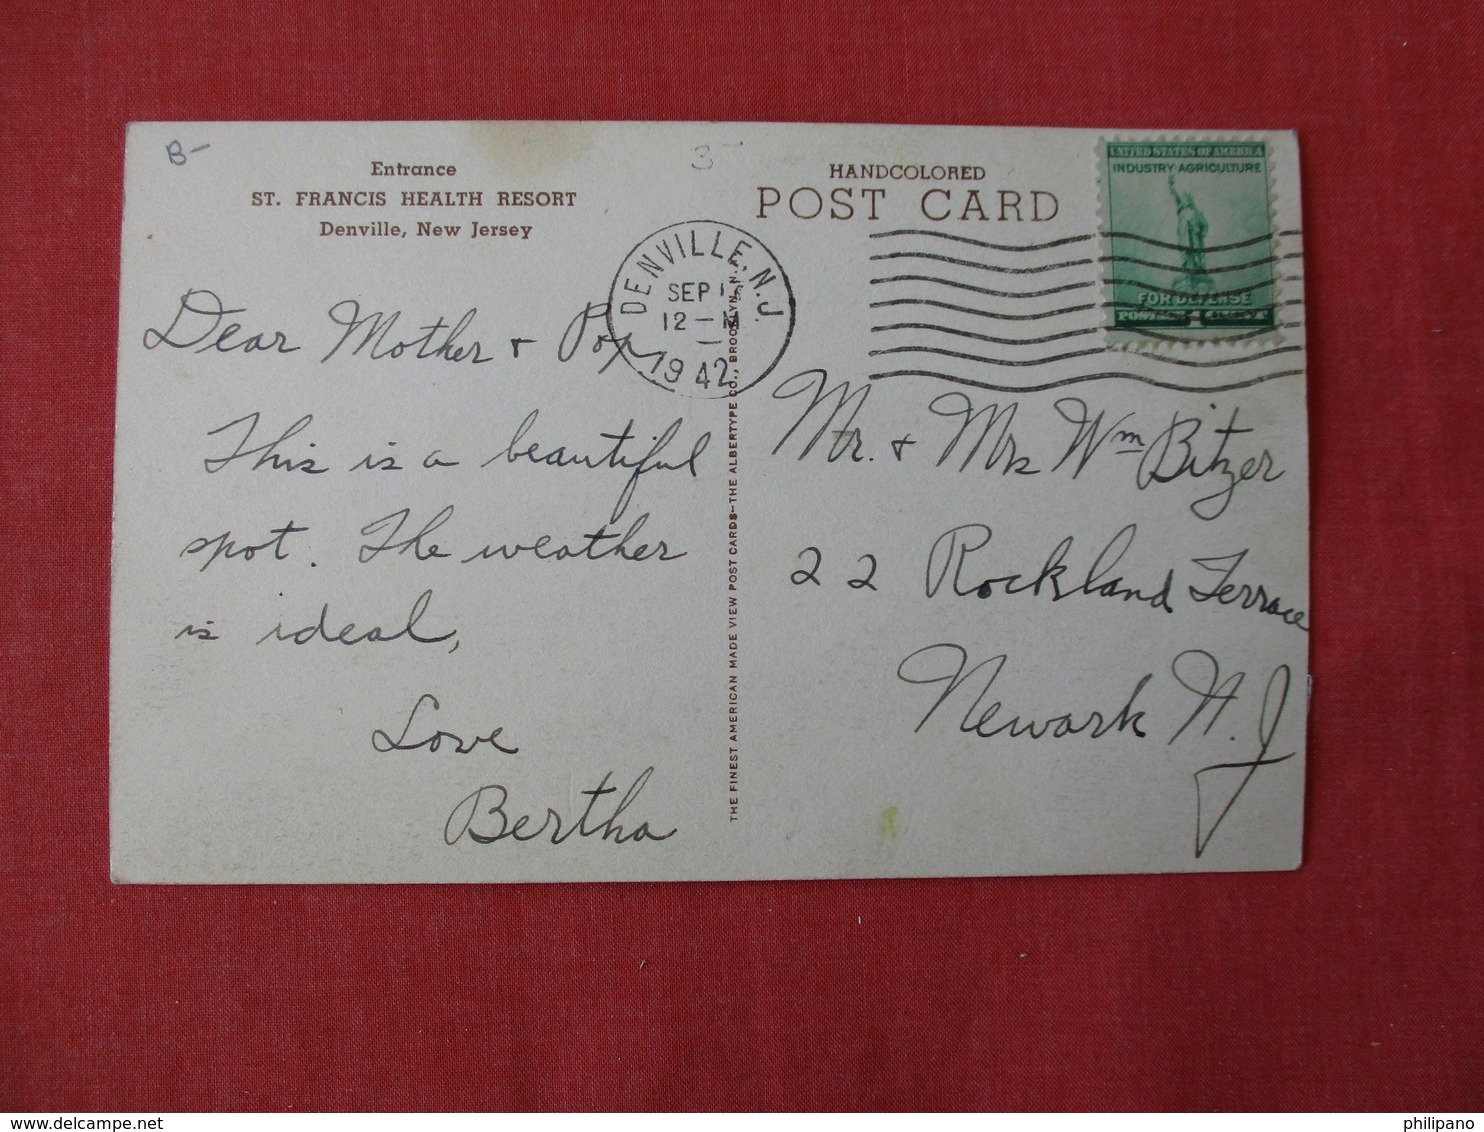 B-
3-
Entrance
ST. FRANCIS HEALTH RESORT
Denville, New Jersey
HANDCOLORED
POST CARD
UNITED STATES OF AMERICA
INDUSTRY AGRICULTURE
FOR DEFENSE
DENVILLE, N.J.
SEP 1
12 - M
1942
Dear Mother + Pop
This is a beautiful
spot. The weather
is ideal,
Love
Bertha
THE FINEST AMERICAN MADE VIEW POST CARDS-THE ALBERTYPE CO., BROOKLYN, N.Y.
Mr. + Mrs Wm Bitzer
22 Rockland Terrace
Newark N.J
www.delcampe.net
philipano